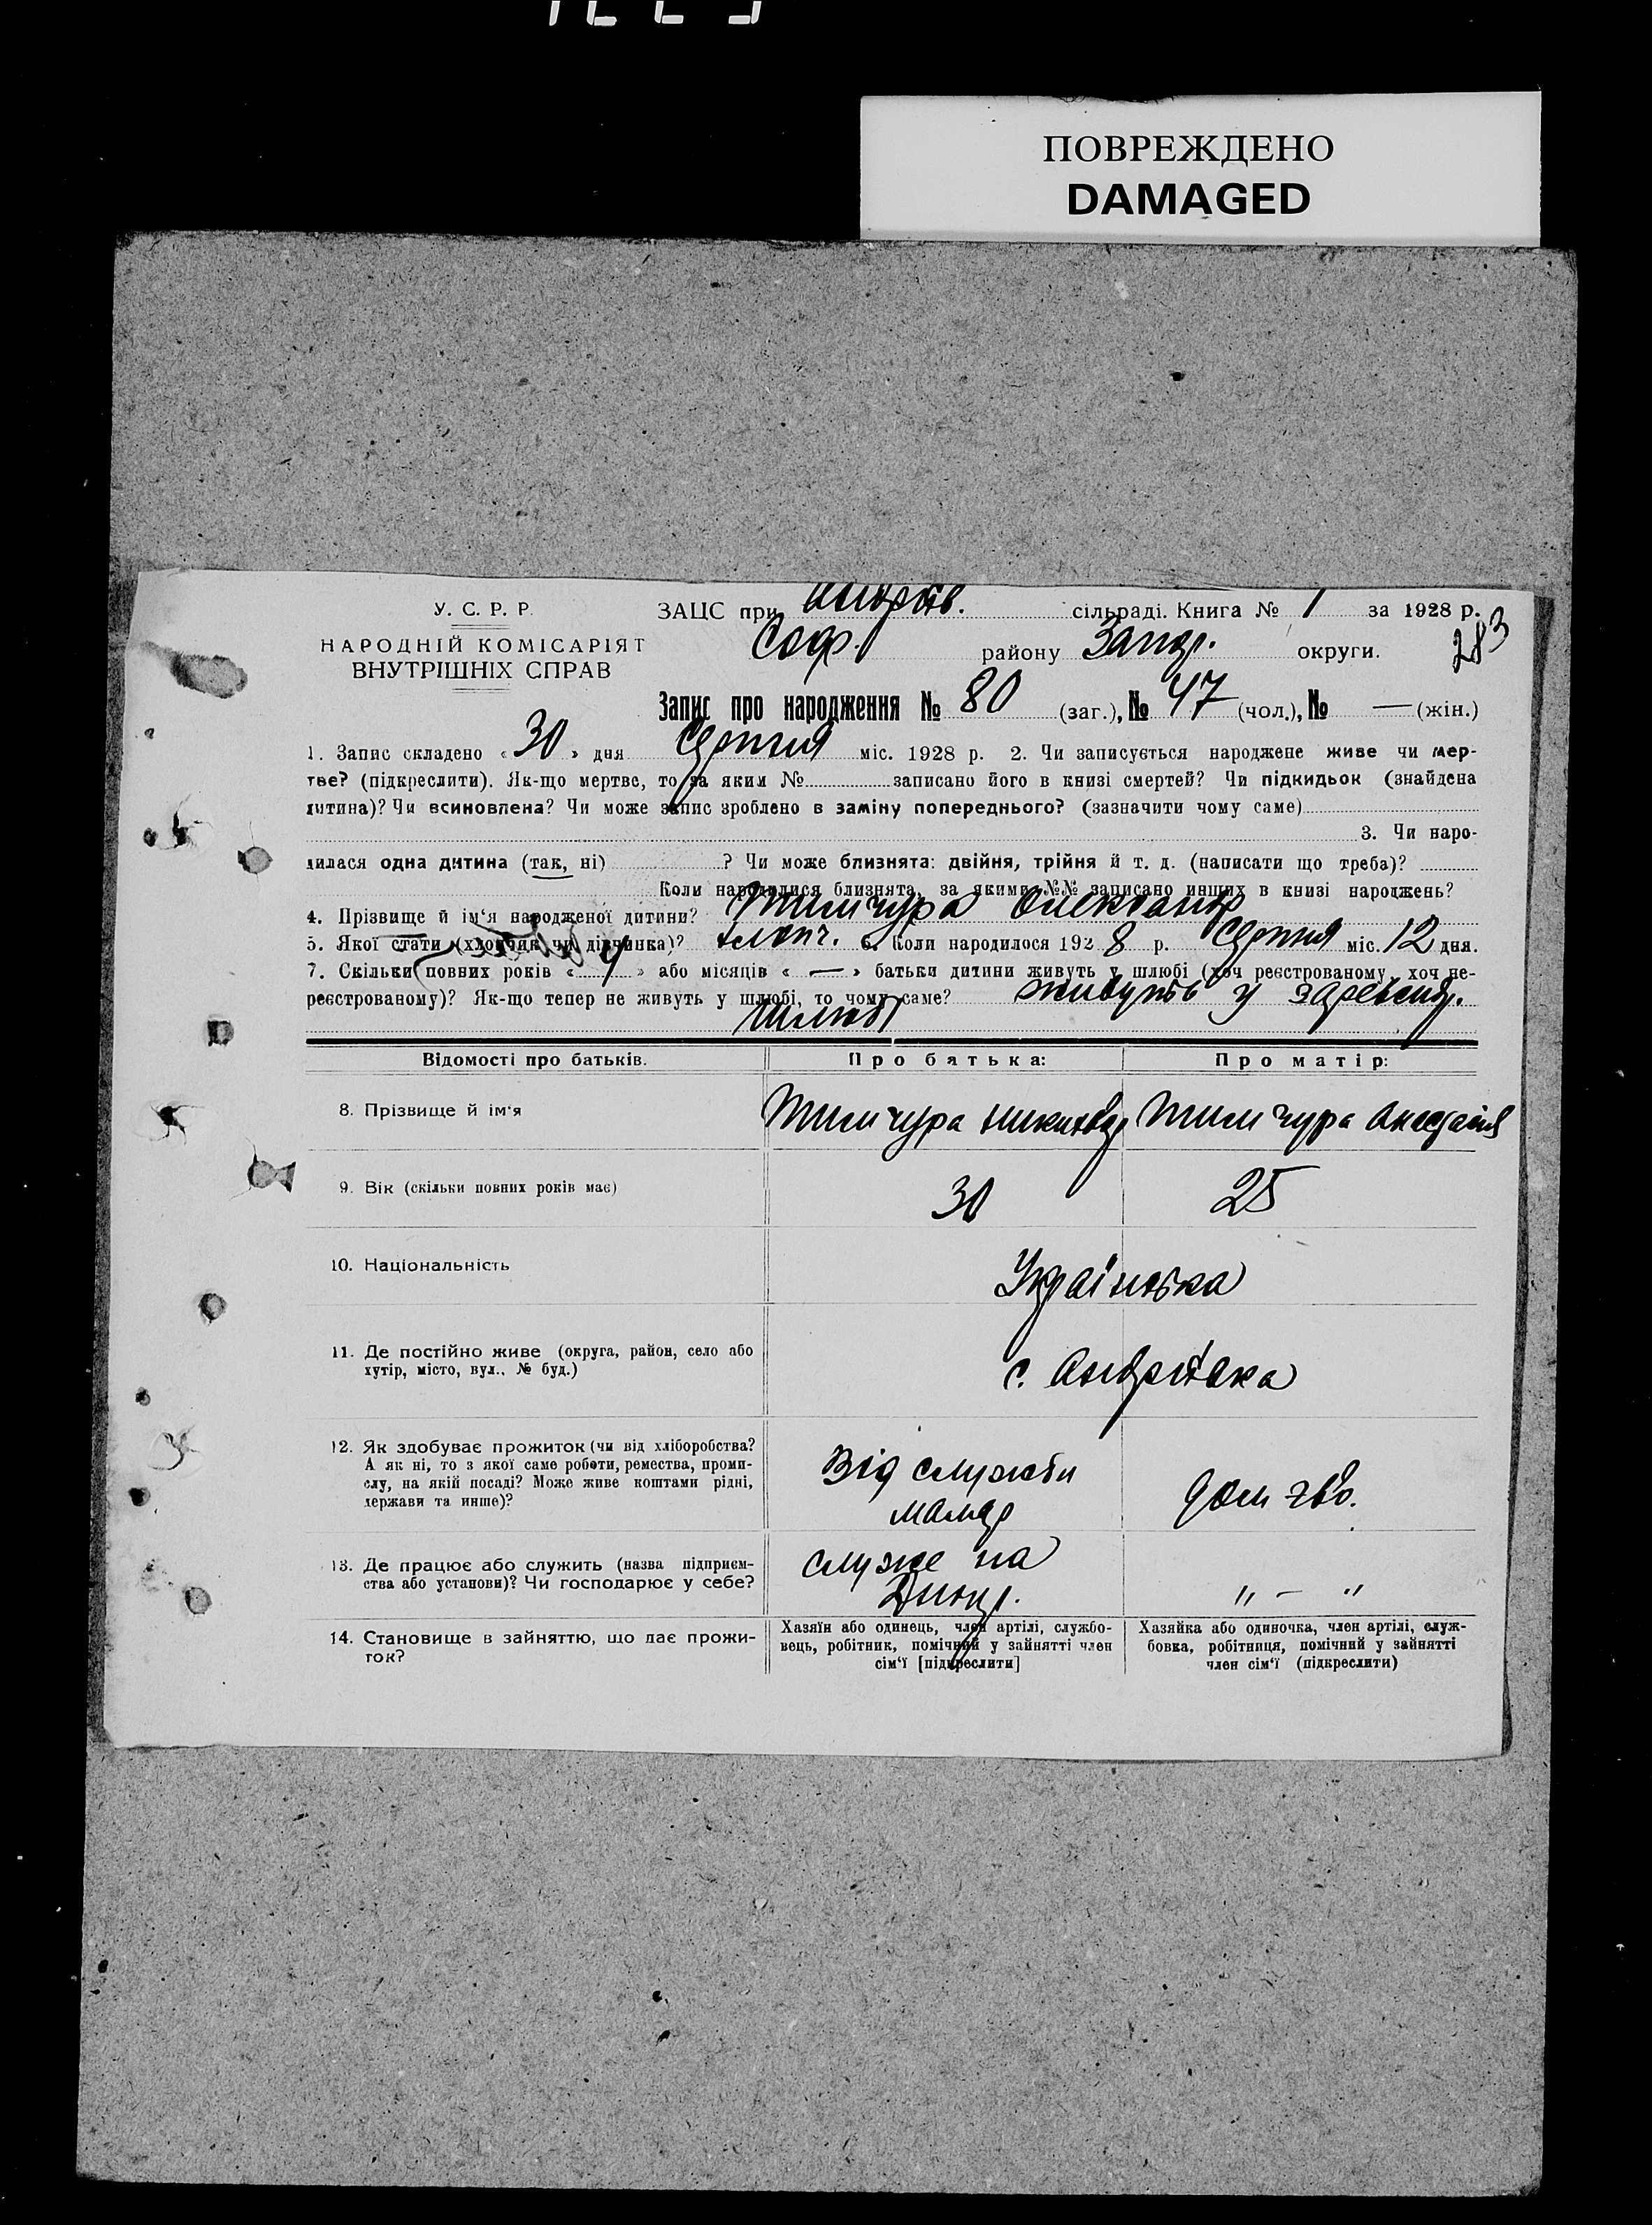 ПОВРЕЖДЕНО
DAMAGED
У. С. Р. Р.
НАРОДНІЙ КОМІСАРІЯТ
ВНУТРІШНІХ СПРАВ
ЗАЦС при Андріїв. сільраді. Книга № 1 за 1928 р.
Соф. району Запор. округи. 283
Запис про народження № 80 (заг.), № 47 (чол.), № — (жін.)
1. Запис складено « 30 » дня Серпня міс. 1928 р. 2. Чи записується народжене живе чи мер-
тве? (підкреслити). Як-що мертве, то за яким № записано його в книзі смертей? Чи підкидьок (знайдена
дитина)? Чи всиновлена? Чи може запис зроблено в заміну попереднього? (зазначити чому саме)
3. Чи наро-
дилася одна дитина (так, ні) ? Чи може близнята: двійня, трійня й т. д. (написати що треба)?
Коли народилися близнята, за якими №№ записано инших в книзі народжень?
4. Прізвище й ім‘я народженої дитини? Тимчура Олександр
5. Якої стати (хлопчик чи дівчинка)? хлопч. 6. Коли народилося 192 8 р. Серпня міс. 12 дня.
7. Скільки повних років « 9 » або місяців « — » батьки дитини живуть у шлюбі (хоч реєстрованому, хоч не-
реєстрованому)? Як-що тепер не живуть у шлюбі, то чому саме? живуть у
шлюбі
Відомості про батьків.
Про батька:
Про матір:
8. Прізвище й ім‘я
Тимчура
Тимчура Анастасія
9. Вік (скільки повних років має)
30
25
10. Національність
Українська
11. Де постійно живе (округа, район, село або
хутір, місто, вул., № буд.)
с. Андріївка
12. Як здобуває прожиток (чи від хліборобства?
А як ні, то з якої саме роботи, ремества, проми-
слу, на якій посаді? Може живе коштами рідні,
держави та инше)?
Від служби
маляр
дом г-во.
13. Де працює або служить (назва підприєм-
ства або установи)? Чи господарює у себе?
служе на
" — "
14. Становище в зайняттю, що дає прожи-
ток?
Хазяїн або одинець, член артілі, службо-
вець, робітник, помічний у зайнятті член
сім‘ї [підкреслити]
Хазяйка або одиночка, член артілі, служ-
бовка, робітниця, помічний у зайнятті
член сім‘ї (підкреслити)